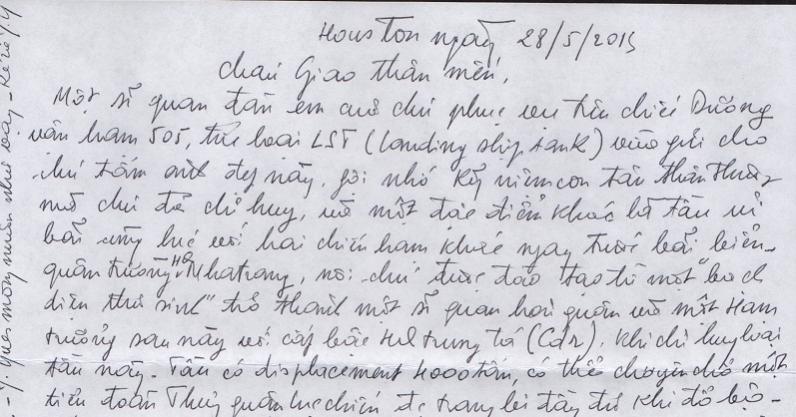 Houston ngày 28/5/2015
cháu Giao thân mến,
Một sĩ quan đàn em cuả chú phục vụ trên chiếc Dương
vận hạm 505, thuộc loại LST (landing ship tank) vừa gửi cho
chú tấm ảnh đẹp này, gợi nhớ kỷ niệm con tàu thân thương
mà chú đã chỉ huy, và một đặc điểm khác là tàu ủi
bãi cùng lúc với hai chiến hạm khác ngay trước bãi biển
quân trường HQ Nhatrang, nơi chú được đào tạo từ một "bạch
diện thư sinh" trở thành một sĩ quan hải quân và một Hạm
trưởng sau này với cấp bậc HQ trung tá (Cdr), khi chỉ huy loại
tàu này. Tàu có displacement 4000 tấn, có thể chuyên chở một
tiểu đoàn Thủy quân lục chiến được trang bị đầy đủ khi đổ bộ -